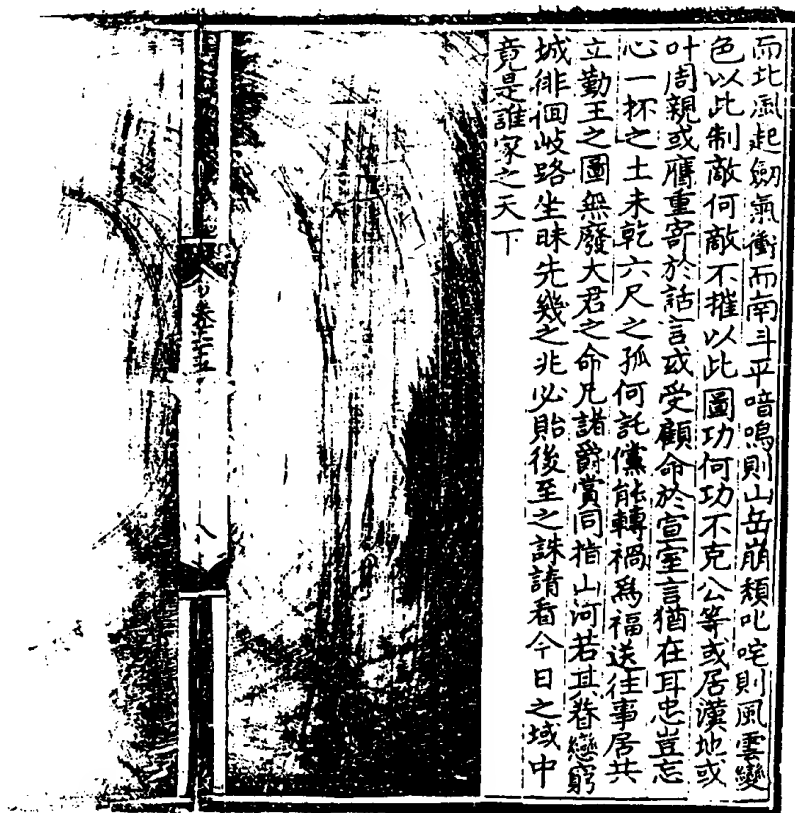 而北風起劒氣衝而南斗平喑鳴則山岳崩頹叱咤則風雲變
色以此制敵何敵不摧以此圖功何功不克公等或居漢地或
叶周親或膺重寄於話言或受顧命於宣室言猶在耳忠豈忘
心一抔之土未乾六尺之孤何託儻能轉禍爲福送往事居共
立勤王之圖無廢大君之命凡諸爵賞同指山河若其眷戀窮
城徘徊岐路坐昧先幾之兆必貽後至之誅請看今日之域中
竟是誰家之天下
八